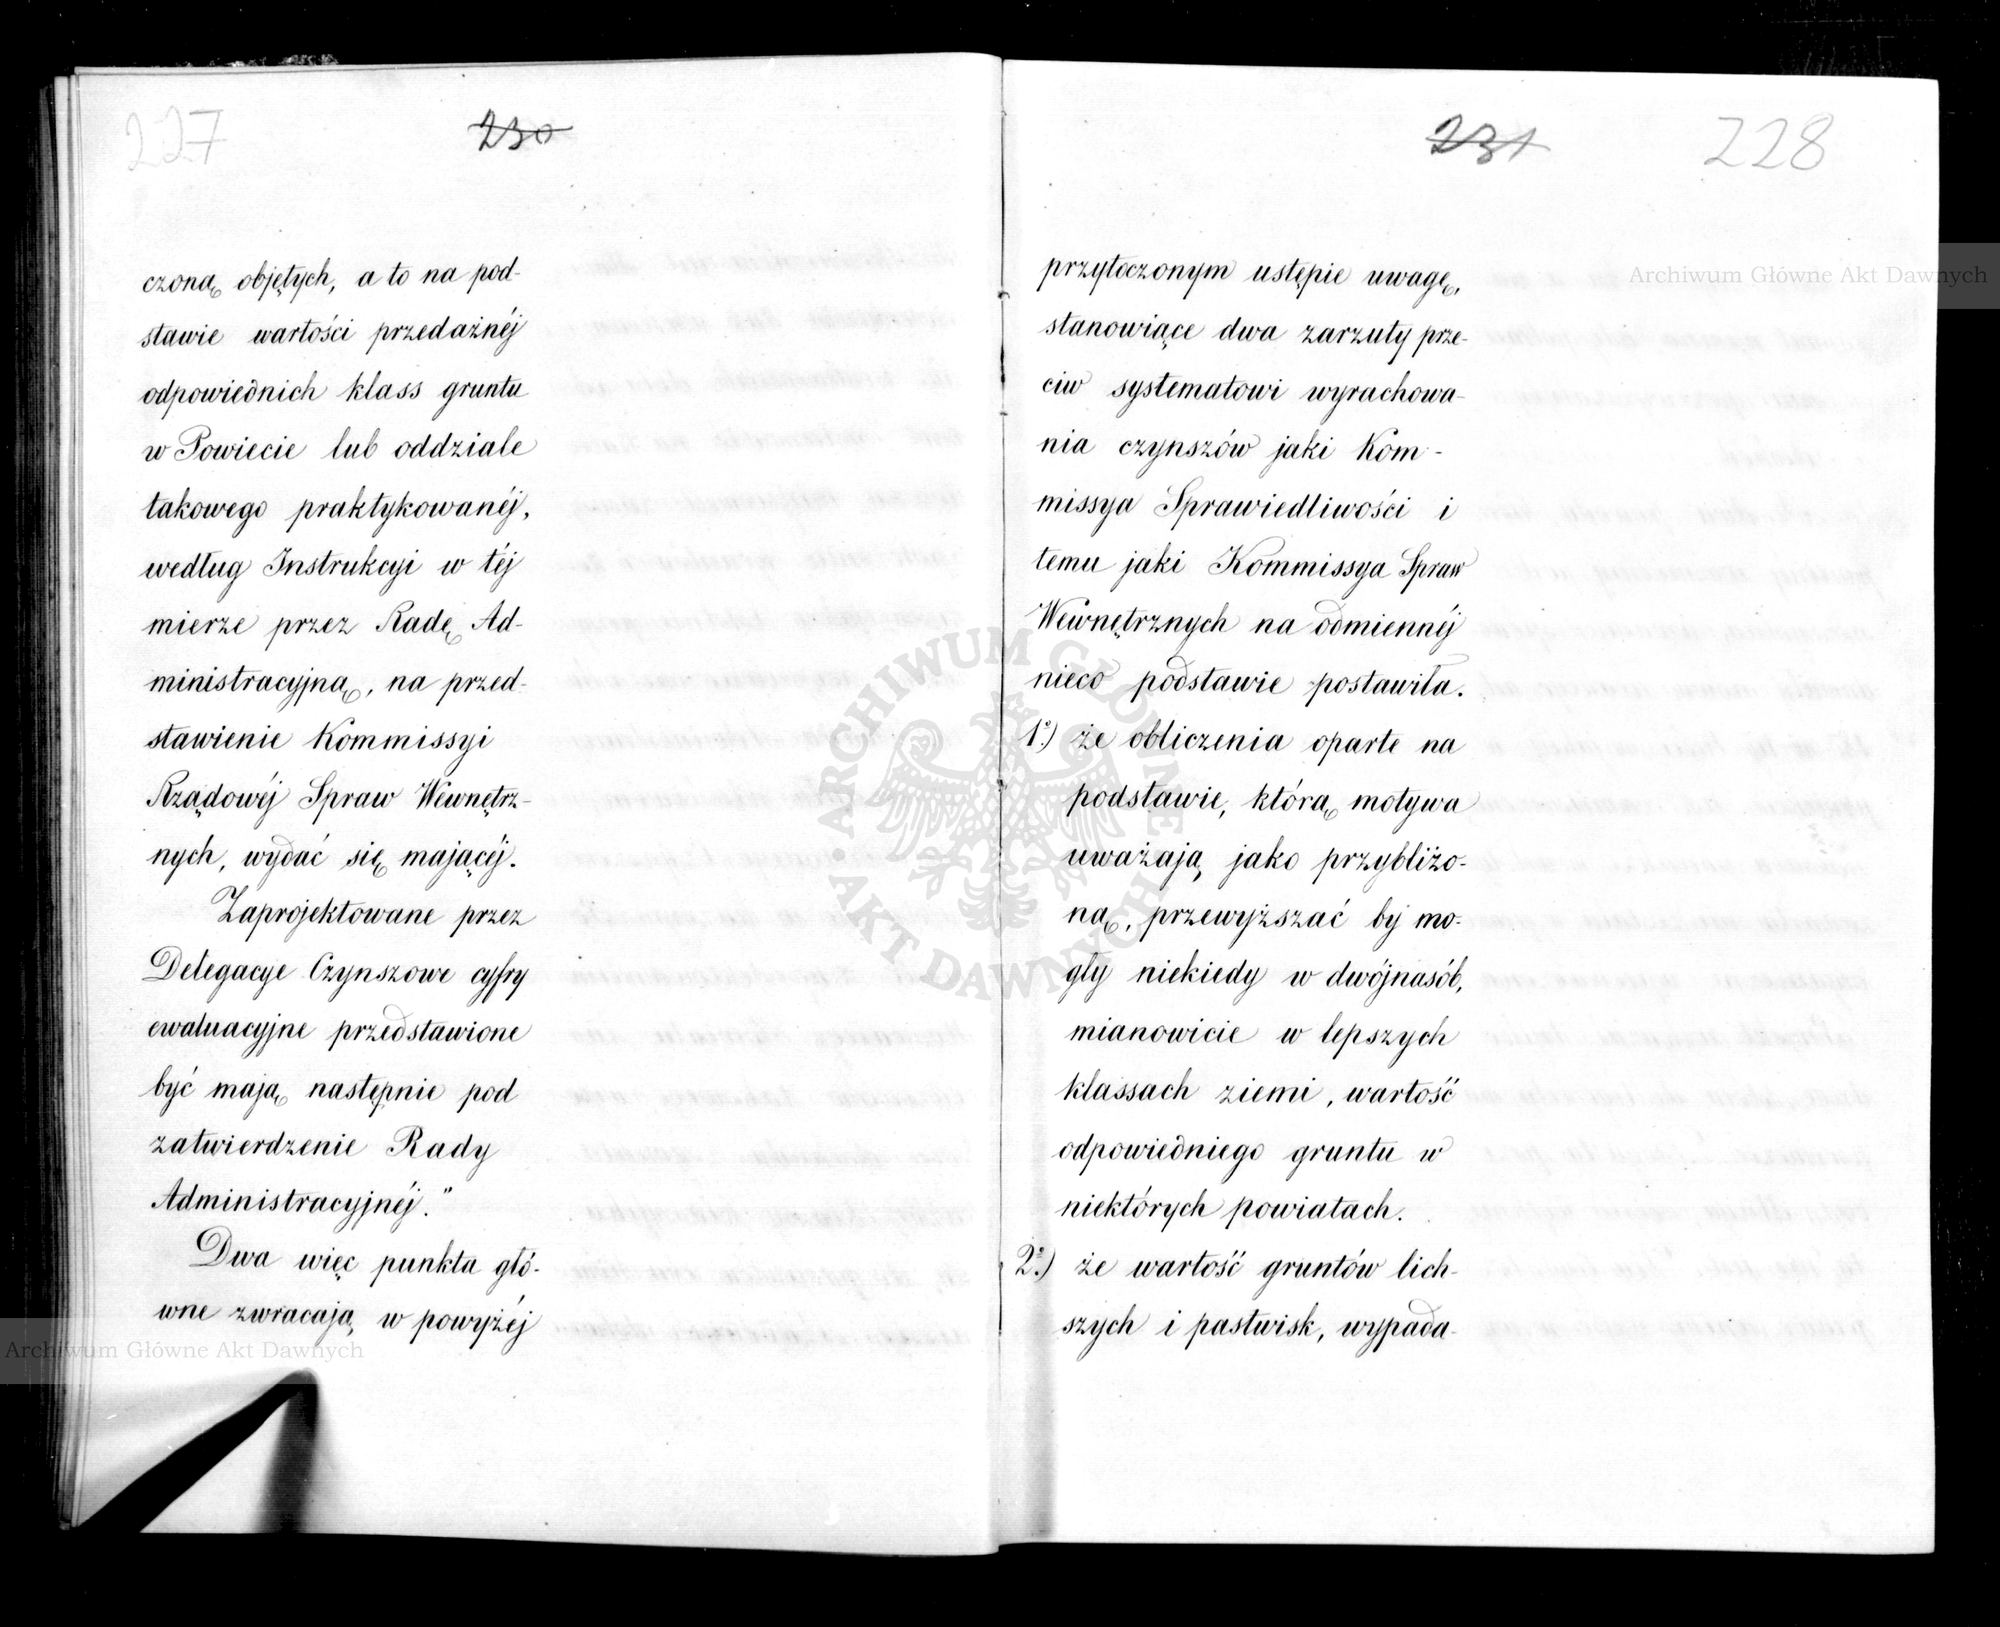 227
230
czoną objętych, a to na pod-
stawie wartości przedażnéj
odpowiednich klass gruntu
w Powiecie lub oddziale
takowego praktykowanéj,
według Instrukcyi w téj
mierze przez Radę Ad-
ministracyjną, na przed-
stawienie Kommissyi
Rządowéj Spraw Wewnętrz-
nych, wydać się mającéj.
Zaprojektowane przez
Delegacye Czynszowe cyfry
ewaluacyjne przedstawione
być mają następnie pod
zatwierdzenie Rady
Administracyjnéj."
Dwa więc punkta głó-
wne zwracają w powyżéj
231
228
przytoczonym ustępie uwagę,
stanowiące dwa zarzuty prze-
ciw systematowi wyrachowa-
nia czynszów jaki Kom-
missya Sprawiedliwości i
temu jaki Kommissya Spraw
Wewnętrznych na odmiennéj
nieco podstawie postawiła.
1º) że obliczenia oparte na
podstawie, którą motywa
uważają jako przybliżo-
ną, przewyższać by mo-
gły niekiedy w dwójnasób,
mianowicie w lepszych
klassach ziemi, wartość
odpowiedniego gruntu w
niektórych powiatach.
2º) że wartość gruntów lich-
szych i pastwisk, wypada-
Archiwum Główne Akt Dawnych
ARCHIWUM GŁÓWNE AKT DAWNYCH
Archiwum Główne Akt Dawnych